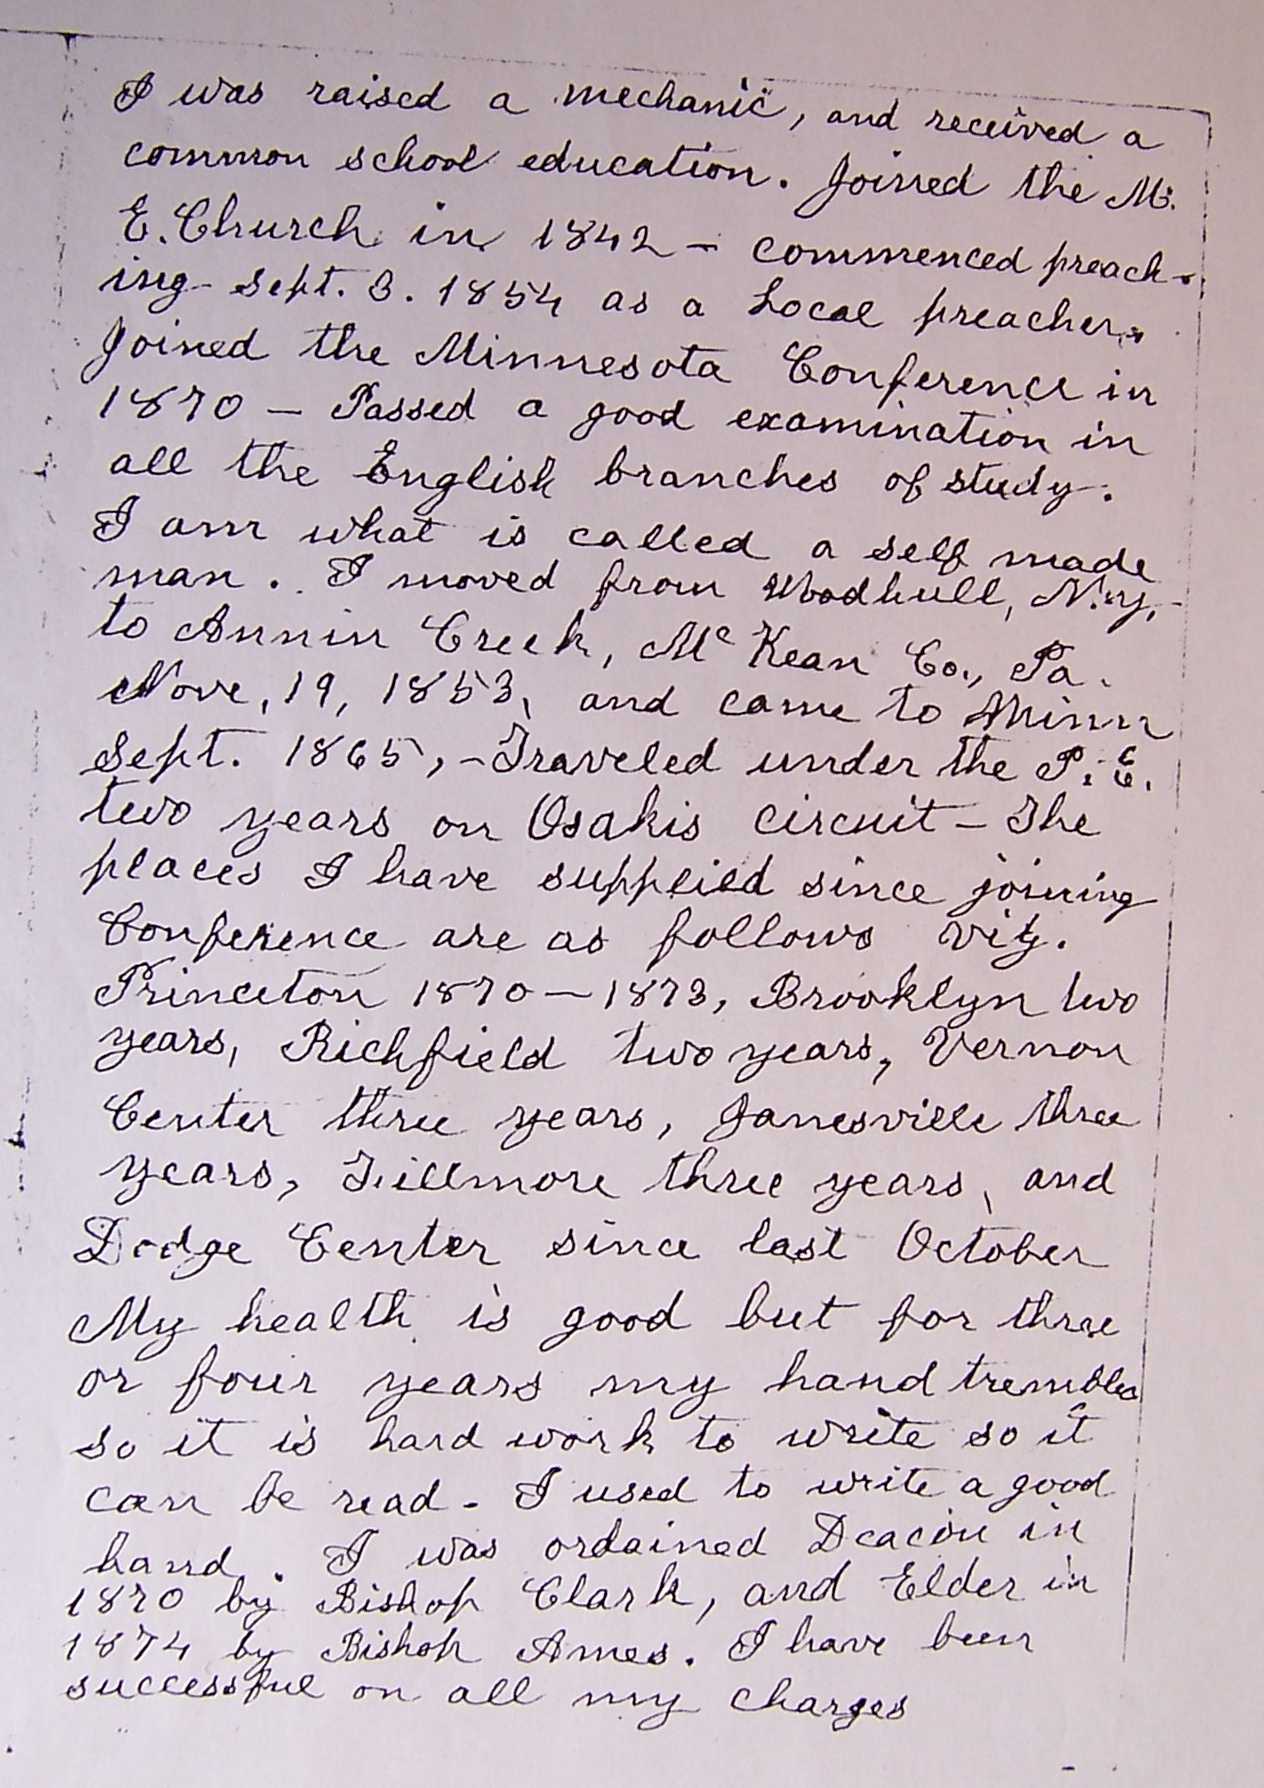 I was raised a mechanic, and received a
common school education. Joined the M.
E. Church in 1842 – commenced preach-
ing Sept. 3. 1854 as a Local preacher.
Joined the Minnesota Conference in
1870 – Passed a good examination in
all the English branches of study.
I am what is called a self made
man. I moved from Woodhull, N.y.
to Annin Creek, Mc Kean Co., Pa.
Nove, 19, 1853, and came to Minn
Sept. 1865, – Traveled under the P. E.
two years on Osakis circuit – The
places I have suppleild since joining
Conference are as follows viz.
Princeton 1870 – 1873, Brooklyn two
years, Richfield two years, Vernon
Center three years, Janesville three
years, Fillmore three years, and
Dodge Center since last October
My health is good but for three
or four years my hand trembles
so it is hard work to write so it
can be read – I used to write a good
hand. I was ordained Deacon in
1870 by Bishop Clark, and Elder in
1874 by Bishop Ames. I have been
successful on all my charges